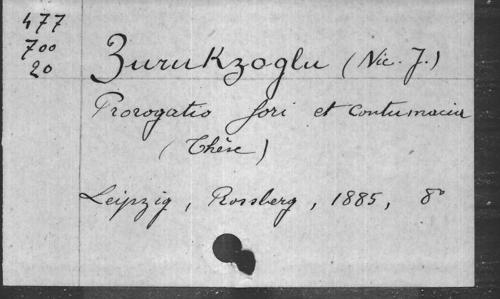 477
700
20
Zurukzoglu (Nic. J.)
Prorogatio fori et contumacia
(Thèse)
Leipzig, Rossberg, 1885, 8°